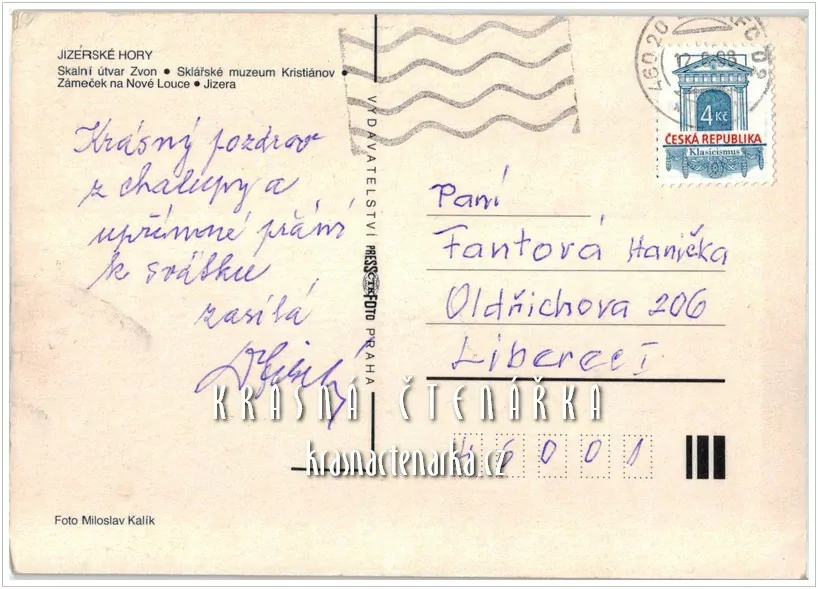 JIZERSKÉ HORY
Skalní útvar Zvon • Sklářské muzeum Kristiánov •
Zámeček na Nové Louce • Jizera
Krásný pozdrav
z chalupy a
upřímné přání
k svátku
zasílá
VYDAVATELSTVÍ PRESSFOTO PRAHA
ČTK
460 20
4 Kč
ČESKÁ REPUBLIKA
Klasicismus
Paní
Fantová Hanička
Oldřichova 206
Liberec I
46001
KRÁSNÁ ČTENÁŘKA
krasnactenarka.cz
Foto Miloslav Kalík